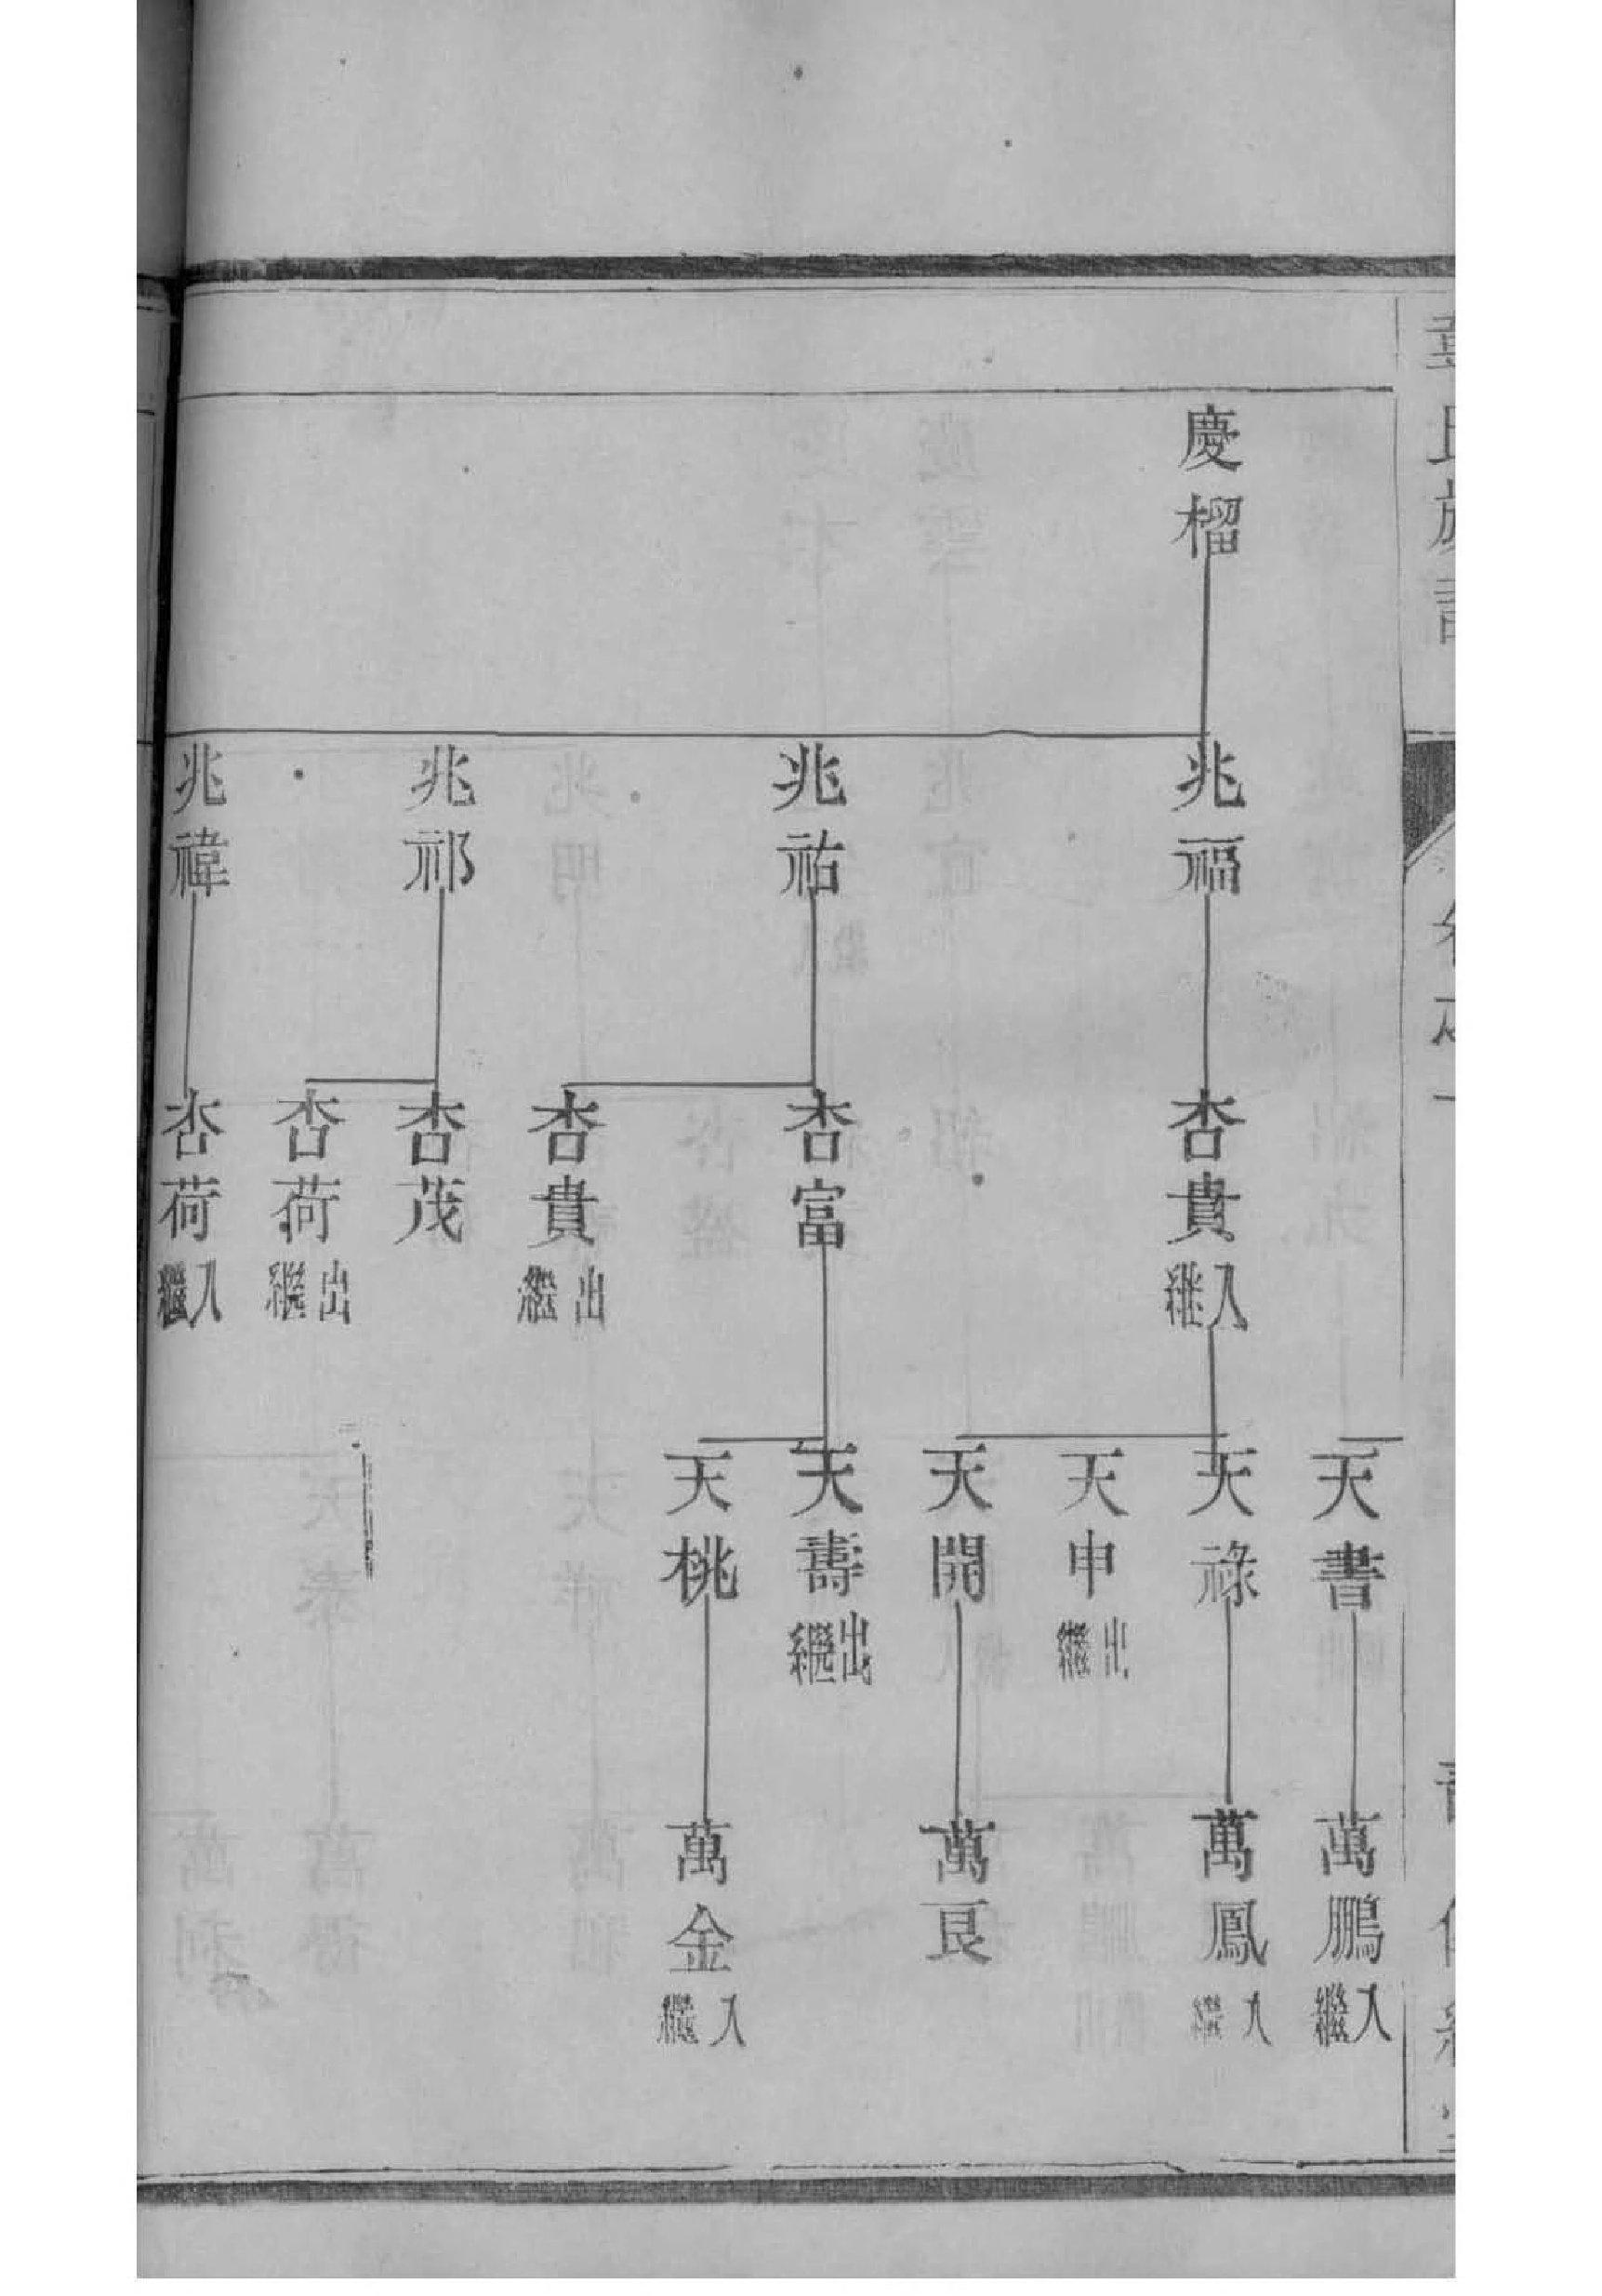 慶榴
兆福
兆祐
兆祁
兆禕
杏貴入繼
杏富
杏貴出繼
杏茂
杏荷出繼
杏荷入繼
天書
天祿
天申出繼
天開
天壽出繼
天桃
萬鵬入繼
萬鳳入繼
萬艮
萬金入繼